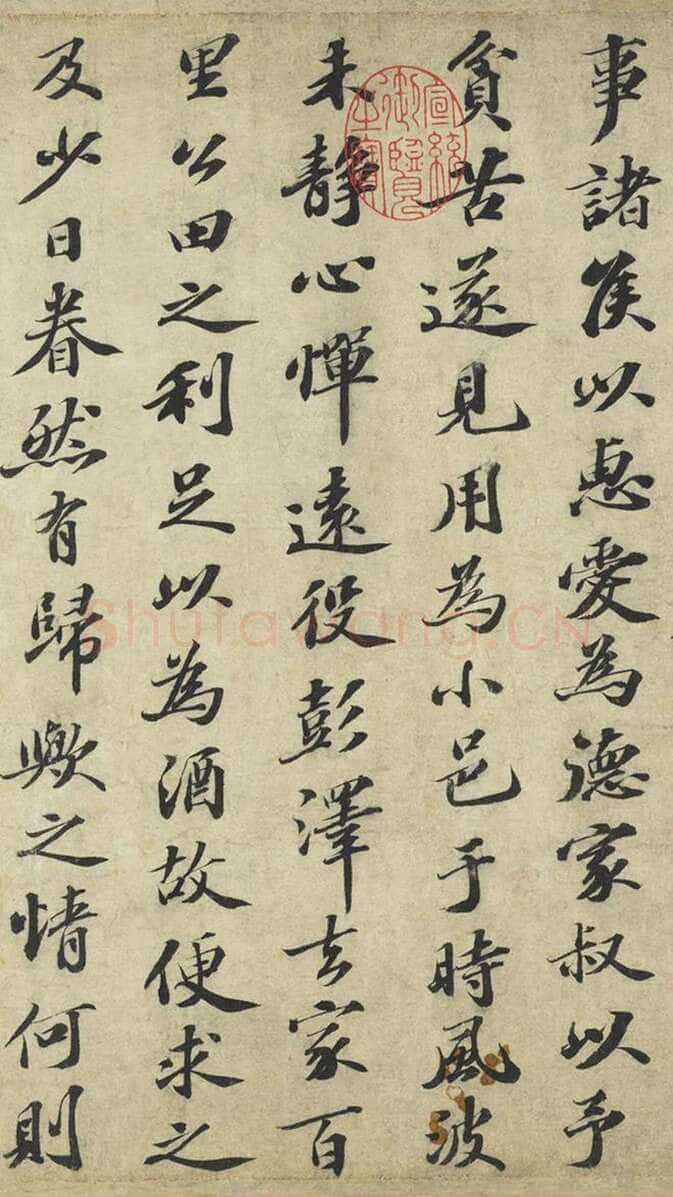 事諸侯以惠愛為德家叔以予
貧苦遂見用為小邑于時風波
未靜心憚遠役彭澤去家百
里公田之利足以為酒故便求之
及少日眷然有歸歟之情何則
宣統御覽之寶
Shufawang.CN